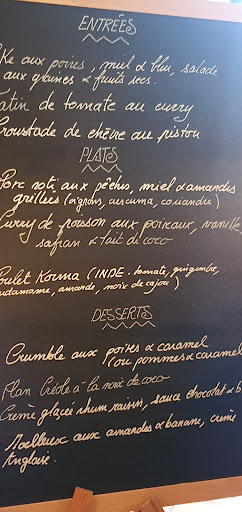 ENTRÉES
aux poires, miel & bleu, salade
aux graines & fruits secs.
de tomate au curry
de chèvre au pistou
PLATS
Porc roti aux pêches, miel & amandes
grillées (oignons, curcuma, coriandre)
Curry de poisson aux poireaux, vanille,
safran & lait de coco
Poulet Korma (INDE. tomate, gingembre,
amande, noix de cajou)
DESSERTS
Crumble aux poires & caramel
ou pommes & caramel
Flan Créole à la noix de coco
Crème glacée rhum raisin, sauce chocolat &
Moelleux aux amandes & banane, crème
Anglaise.